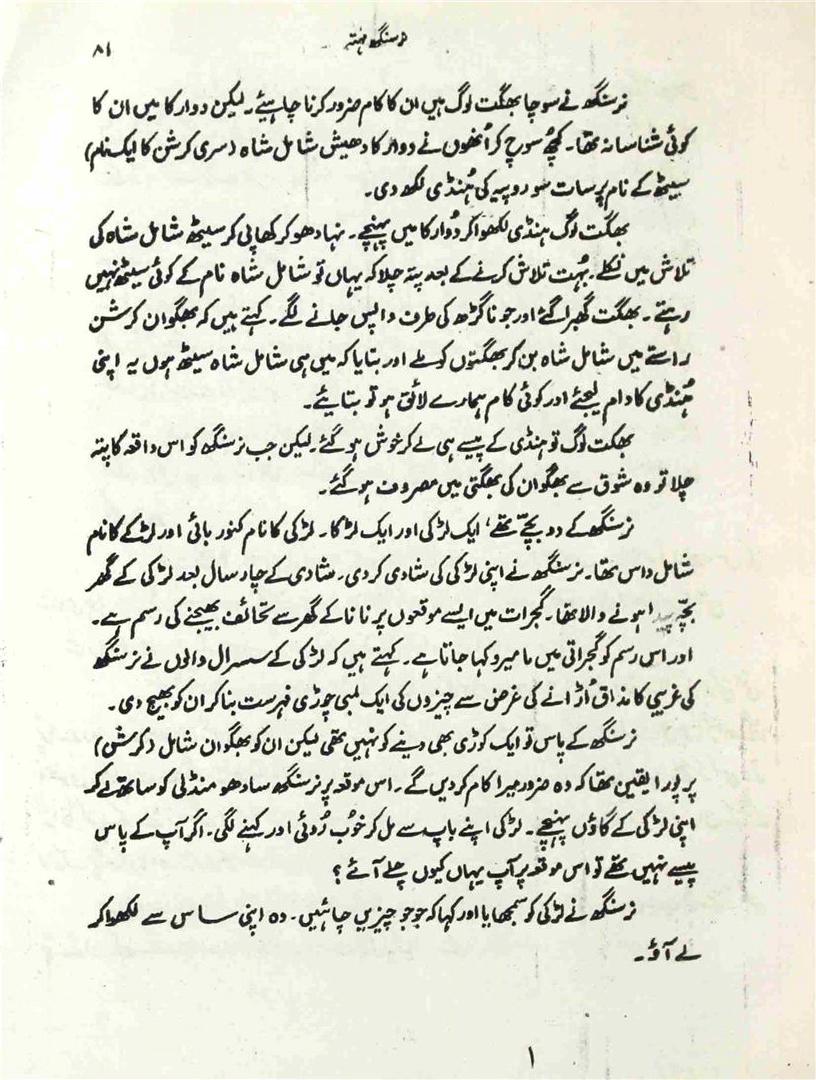 نرسنگھ مہتہ
۸۱
نرسنگھ نے سوچا بھگت لوگ ہیں ان کا کام ضرور کرنا چاہیئے۔ لیکن دوارکا میں ان کا
کوئی شناسا نہ تھا۔ کچھ سوچ کر اُنھوں نے دوارکا دھیش شامل شاہ (سری کرشن کا ایک نام)
سیٹھ کے نام پر سات سو روپیہ کی ہُنڈی لکھ دی۔
بھگت لوگ ہنڈی لکھوا کر دُوارکا میں پہنچے۔ نہا دھو کر کھا پی کر سیٹھ شامل شاہ کی
تلاش میں نکلے۔ بہُت تلاش کرنے کے بعد پتہ چلا کہ یہاں تو شامل شاہ نام کے کوئی سیٹھ نہیں
رہتے۔ بھگت گھبرا گئے اور جوناگڑھ کی طرف واپس جانے لگے۔ کہتے ہیں کہ بھگوان کرشن
راستے میں شامل شاہ بن کر بھگتوں کو ملے اور بتایا کہ میں ہی شامل شاہ سیٹھ ہوں یہ اپنی
ہُنڈی کا دام لیجئے اور کوئی کام ہمارے لائق ہو تو بتایئے۔
بھگت لوگ تو ہنڈی کے پیسے ہی لے کر خوش ہو گئے۔ لیکن جب نرسنگھ کو اس واقعہ کا پتہ
چلا تو وہ شوق سے بھگوان کی بھگتی میں مصروف ہو گئے۔
نرسنگھ کے دو بچّے تھے، ایک لڑکی اور ایک لڑکا۔ لڑکی کا نام کنور بائی اور لڑکے کا نام
شامل داس تھا۔ نرسنگھ نے اپنی لڑکی کی شادی کر دی۔ شادی کے چار سال بعد لڑکی کے گھر
بچّہ پیدا ہونے والا تھا۔ گجرات میں ایسے موقعوں پر نانا کے گھر سے تحائف بھیجنے کی رسم ہے۔
اور اس رسم کو گجراتی میں مامیرو کہا جاتا ہے۔ کہتے ہیں کہ لڑکی کے سسرال والوں نے نرسنگھ
کی غریبی کا مذاق اُڑانے کی غرض سے چیزوں کی ایک لمبی چوڑی فہرست بنا کر ان کو بھیج دی۔
نرسنگھ کے پاس تو ایک کوڑی بھی دینے کو نہیں تھی لیکن ان کو بھگوان شامل (کرشن)
پر پورا یقین تھا کہ وہ ضرور میرا کام کر دیں گے۔ اس موقعہ پر نرسنگھ سادھو منڈلی کو ساتھ لے کر
اپنی لڑکی کے گاؤں پہنچے۔ لڑکی اپنے باپ سے مل کر خوُب رُوئی اور کہنے لگی۔ اگر آپ کے پاس
پیسے نہیں تھے تو اس موقعہ پر آپ یہاں کیوں چلے آئے؟
نرسنگھ نے لڑکی کو سمجھایا اور کہا کہ جو جو چیزیں چاہئیں۔ وہ اپنی ساس سے لکھوا کر
لے آؤ۔
۱